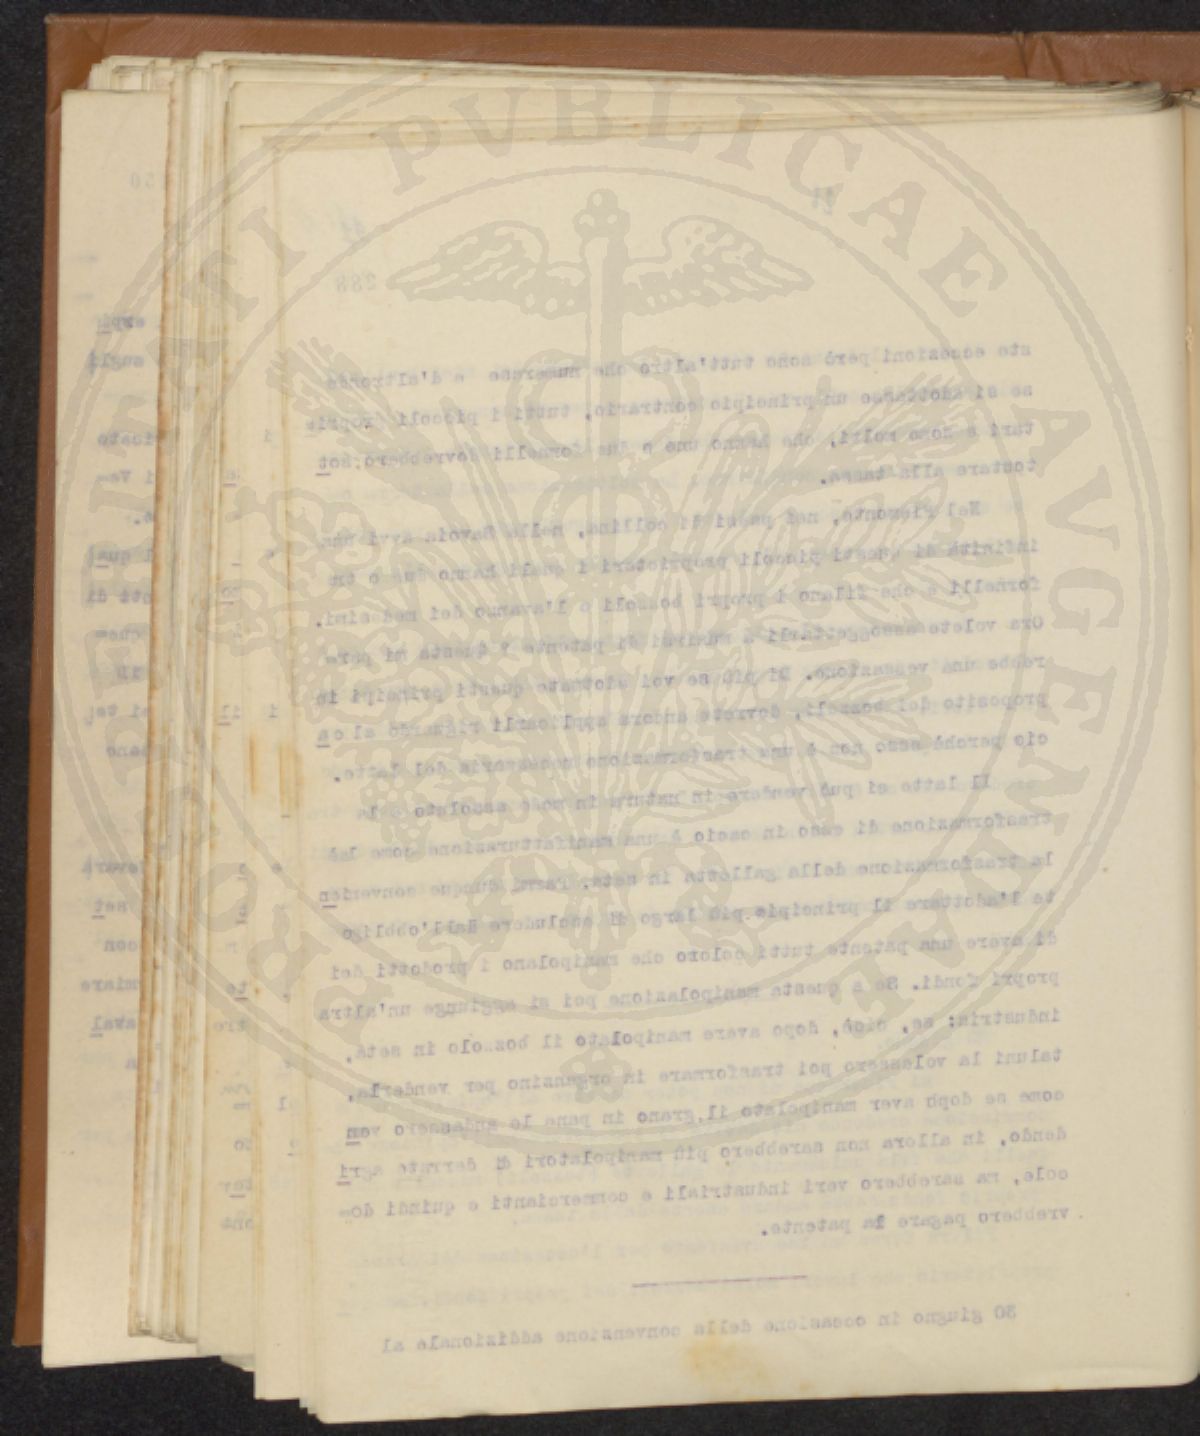 288
ste eccezioni però sono tutt'altro che numerose e d'altronde
se si adottasse un principio contrario, tutti i piccoli proprie
tari e sono molti, che hanno uno o due fornelli dovrebbero sot
tostare alla tassa.
Nel Piemonte, nei paesi di collina, nella Savoia avvi una
infinità di questi piccoli proprietari i quali hanno due o tre
fornelli e che filano i propri bozzoli o l'avanno dei medesimi.
Ora volete assoggettarli a munirsi di patente ? Questa mi par-
rebbe una vessazione. Di più se voi adottate questi principi in
proposito dei bozzoli, dovrete ancora applicarli riguardo al ca
cio perchè esso non è una trasformazione necessaria del latte.
Il latte si può vendere in natura in modo assoluto e la
trasformazione di esso in cacio è una manifatturazione come laè
la trasformazione della galletta in seta. Parmi dunque convenien
te l'adottare il principio più largo di escludere dall'obbligo
di avere una patente tutti coloro che manipolano i prodotti dei
propri fondi. Se a questa manipolazione poi si aggiunge un'altra
industria; se, cioè, dopo avere manipolato il bozzolo in seta,
taluni la volessero poi trasformare in organzino per venderla,
come se dopo aver manipolato il grano in pane lo andassero ven
dendo, in allora non sarebbero più manipolatori di derrate agri
cole, ma sarebbero veri industriali e commercianti e quindi do-
vrebbero pagare la patente.
30 giugno in occasione della convenzione addizionale al